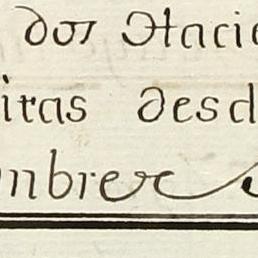 dos Hacie
itas desd
mbre